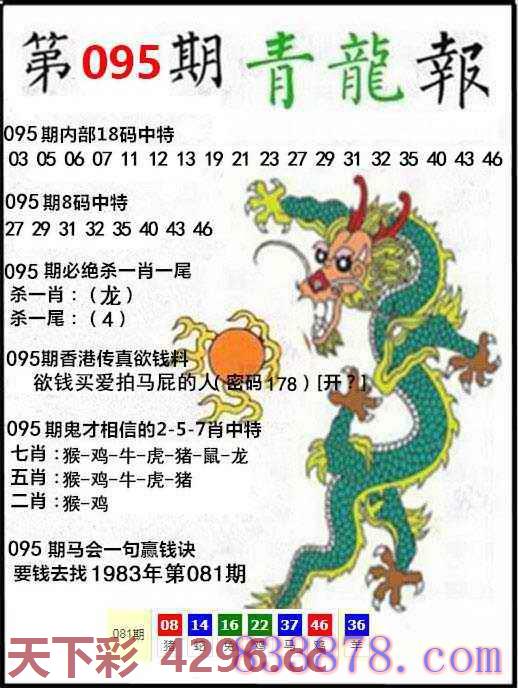 第095期 青龍報
095期内部18码中特
03 05 06 07 11 12 13 19 21 23 27 29 31 32 35 40 43 46
095期8码中特
27 29 31 32 35 40 43 46
095 期必绝杀一肖一尾
杀一肖：（龙）
杀一尾：（4）
095期香港传真欲钱料
欲钱买爱拍马屁的人（密码178）[开？]
095期鬼才相信的2-5-7肖中特
七肖：猴-鸡-牛-虎-猪-鼠-龙
五肖：猴-鸡-牛-虎-猪
二肖：猴-鸡
095期马会一句赢钱诀
要钱去找1983年第081期
081期 08 14 16 22 37 46 36
猪 蛇 兔 鸡 马 鸡 羊
天下彩 4296.cc
838878.com